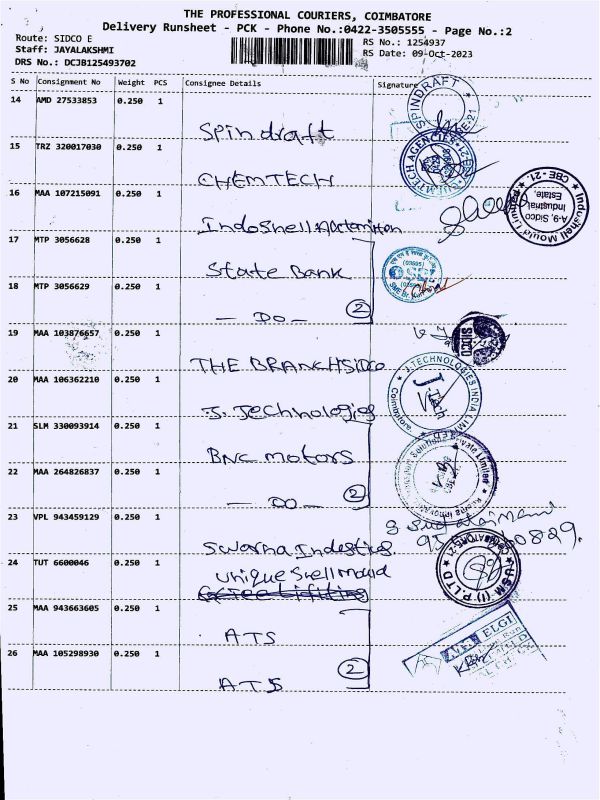 THE PROFESSIONAL COURIERS, COIMBATORE
Delivery Runsheet - PCK - Phone No.:0422-3505555 - Page No.:2
Route: SIDCO E
Staff: JAYALAKSHMI
DRS No.: DCJB125493702
RS No.: 1254937
RS Date: 09-Oct-2023
S No Consignment No Weight PCS Consignee Details Signature
14 AMD 27533853 0.250 1
Spin draft
SPINDRAFT
15 TRZ 320017030 0.250 1
CHEMTECH
16 MAA 107215091 0.250 1
Indoshell
Indushell Mould Limited
A-9, Sidco
Industrial
Estate,
CBE - 21.
17 MTP 3056628 0.250 1
State Bank
18 MTP 3056629 0.250 1
- DO - 2
19 MAA 103876657 0.250 1
THE BRANCH SIDCO
SIICO
20 MAA 106362210 0.250 1
J. Technologies
J. TECHNOLOGIES INDIA LIMITED
J. Tech
Coimbatore
21 SLM 330093914 0.250 1
BNC motors
22 MAA 264826837 0.250 1
- DO - 2
23 VPL 943459129 0.250 1
Swarna
24 TUT 6600046 0.250 1
unique Shell Mould
USM (I) P LTD
COIMBATORE-21
25 MAA 943663605 0.250 1
ATS
ATS ELGI
26 MAA 105298930 0.250 1
ATS 2